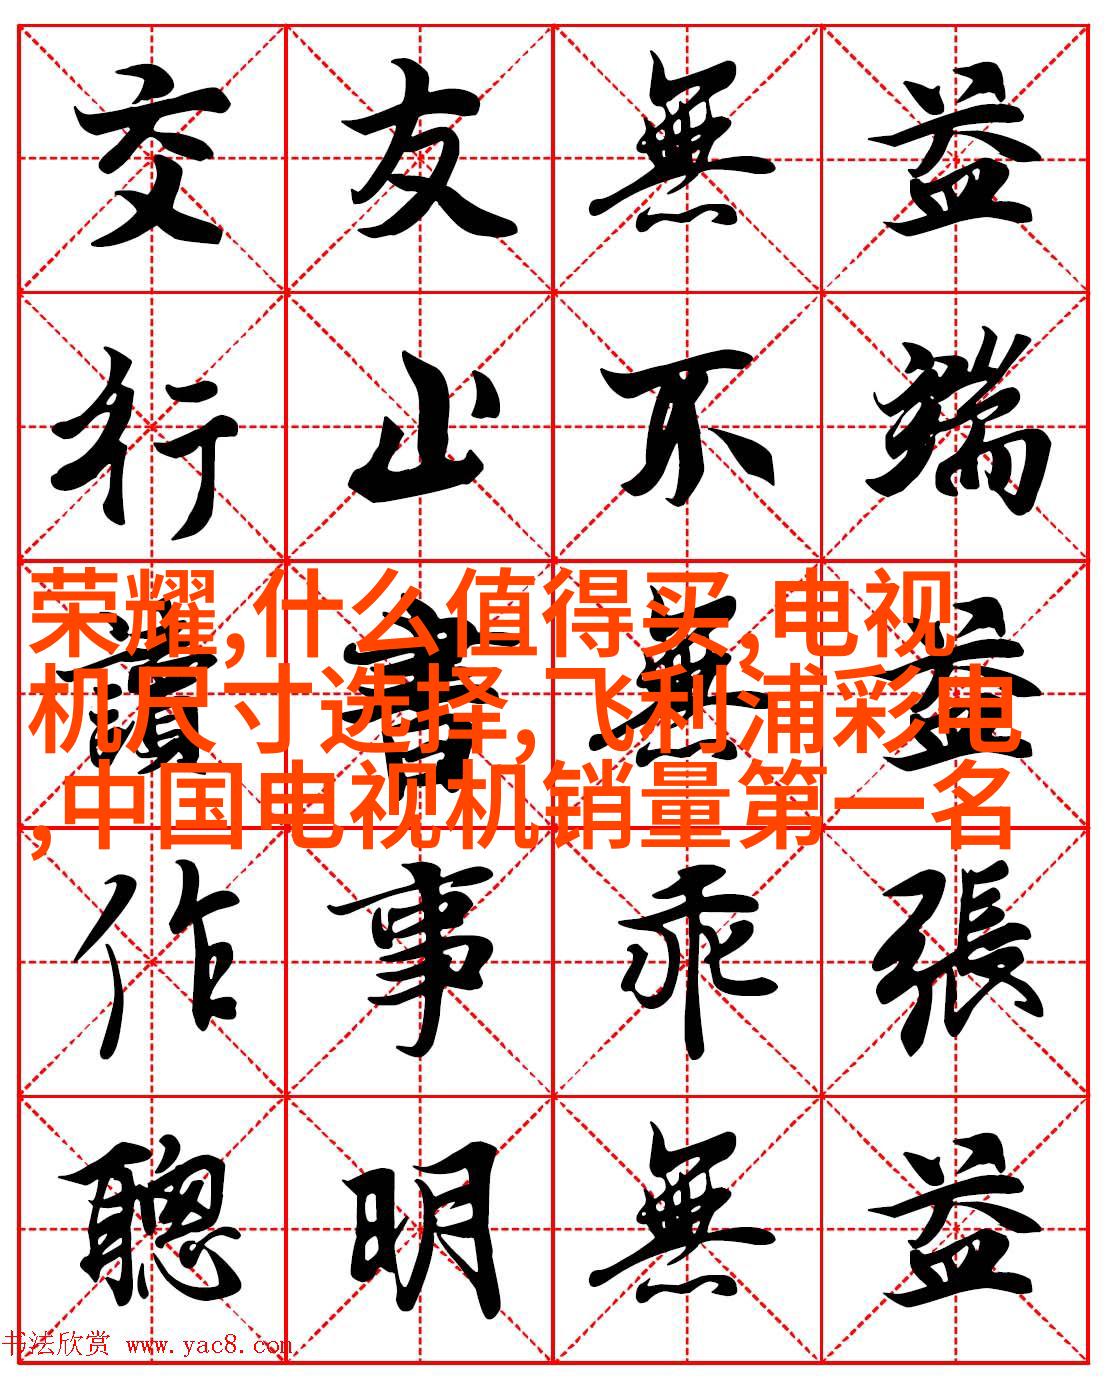 交友無益
行止不端
讀書無益
作事乖張
聰明無益
荣耀,什么值得买,电视
机尺寸选择,飞利浦彩电
,中国电视机销量第一名
书法欣赏 www.yac8.com